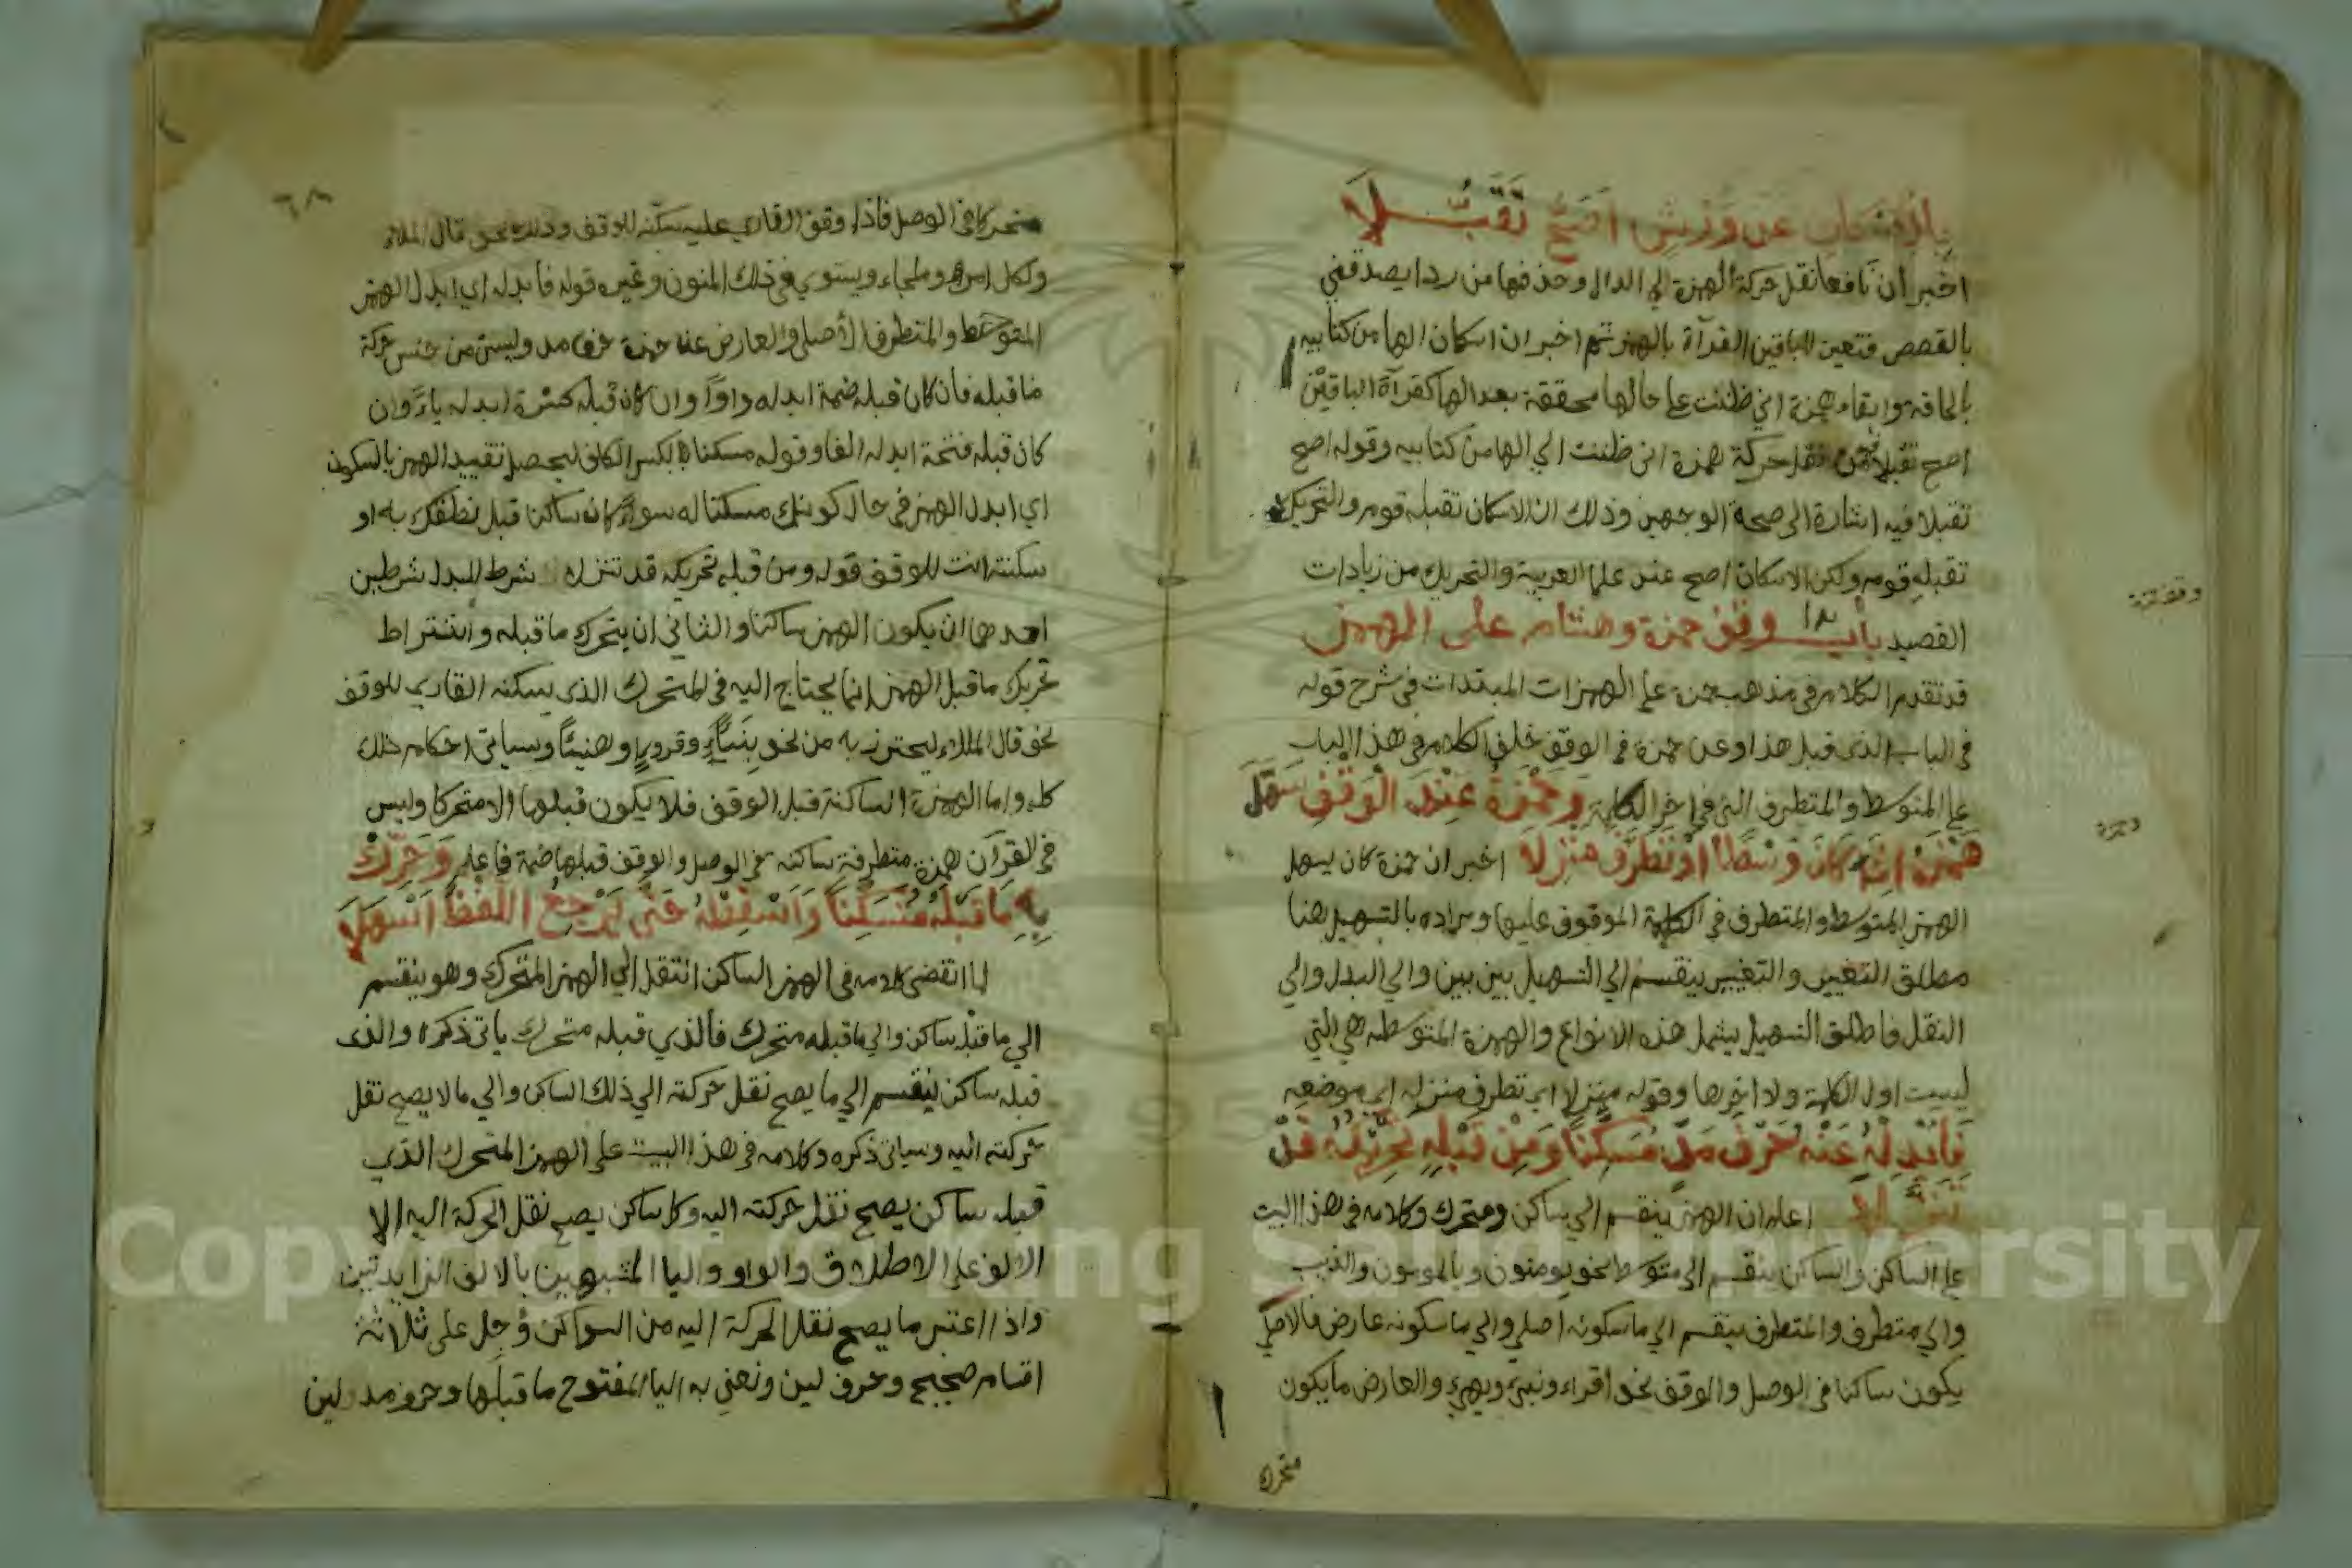 بِالاِسْكَانِ عن وَرْشٍ اَصَحُّ تَقَبُّلَا
اخبر ان نافعا نقل حركة الهمزة الي الدال وحذفها من ردا يصدقني
بالقصص فتعين للباقين القراة بالهمز ثم اخبر ان اسكان الها من كتابيه
بالحاقة وابقاء همزة اني ظننت علي حالها محققة بعد الها كقراة الباقين
اصح تقبلا من نقل حركة همزة اني ظننت الي الها من كتابيه وقوله اصح
تقبلا فيه اشارة الي صحة الوجهين وذلك ان الاسكان تقبله قوم والتحريك
تقبله قوم ولكن الاسكان اصح عند علما العربية والتحريك من زيادات
القصيد باب وقف حمزة وهشام على الهمز
قد تقدم الكلام في مذهب حمزة علي الهمزات المبتدات في شرح قوله
في الباب الذي قبل هذا وعن حمزة في الوقف خلف الكلام في هذا الباب
علي المتوسط والمتطرف التي في اخر الكلمة وَحَمْزَةُ عِنْدَ الْوَقْفِ سَهَّلَ
هَمْزَهُ اِذَا كَانَ وَسْطًا اَوْ تَطَرَّفَ مَنْزِلَا اخبر ان حمزة كان يسهل
الهمز المتوسط والمتطرف في الكلمة الموقوف عليها ومراده بالتسهيل هنا
مطلق التغيير والتغيير ينقسم الي التسهيل بين بين والي البدل والي
النقل فاطلق التسهيل يشمل هذه الانواع والهمزة المتوسطة هي التي
ليست اول الكلمة ولا اخرها وقوله منزلا اي تطرف منزله اي موضعه
فَاَبْدِلْهُ عَنْهُ حَرْفَ مَدٍّ مُسَكِّنًا وَمِنْ قَبْلِهِ تَحْرِيكُهُ قَدْ
تَنَزَّلَا اعلم ان الهمز ينقسم الي ساكن ومتحرك وكلامه في هذا البيت
علي الساكن والساكن ينقسم الي متوسط نحو يومنون ويالمون والذيب
والي متطرف والمتطرف ينقسم الي ما سكونه اصلي والي ما سكونه عارض فالاصلي
يكون ساكنا في الوصل والوقف نحو اقراء ونبئ ويهيئ والعارض ما يكون
متحرك
متحركا في الوصل فاذا وقف القاري عليه سكنه للوقف وذلك نحو قال الملاء
ولكل امرء وملجاء ويستوي في ذلك المنون وغيره قوله فابدله اي ابدل الهمز
المتوسط والمتطرف الاصلي والعارض عن حمزة حرف مد ولين من جنس حركة
ما قبله فان كان قبله ضمة ابدله واوًا وان كان قبله كسرة ابدله ياءً وان
كان قبله فتحة ابدله الفا وقوله مسكنا بكسر الكاف ليحصل تقييد الهمز بالسكون
اي ابدل الهمز في حال كونك مسكنا له سواء كان ساكنا قبل نطقك به او
سكنته انت للوقف قوله ومن قبله تحريكه قد تنزلا شرط للبدل شرطين
احدهما ان يكون الهمز ساكنا والثاني ان يتحرك ما قبله واشتراط
تحريك ما قبل الهمز انما يحتاج اليه في المتحرك الذي يسكنه القاري للوقف
نحو قال الملاء ليحترز به من نحو وقروء وهنيئًا وسياتي احكام ذلك
كله واما الهمزة الساكنة قبل الوقف فلا يكون قبلها الا متحركا وليس
في القران همزة متطرفة ساكنه في الوصل والوقف قبلها ضمة فاعلم وَحَرِّكْ
بِهِ مَا قَبْلَهُ مُتَسَكِّنًا وَاَسْقِطْهُ حَتَّى يَرْجِعَ اللَّفْظُ اَسْهَلَا
لما انقضى كلامه في الهمز الساكن انتقل الي الهمز المتحرك وهو ينقسم
الي ما قبله ساكن والي ما قبله متحرك فالذي قبله متحرك ياتي ذكره والذي
قبله ساكن ينقسم الي ما يصح نقل حركته الي ذلك الساكن والي ما لا يصح نقل
حركته اليه وسياتي ذكره وكلامه في هذا البيت علي الهمز المتحرك الذي
قبله ساكن يصح نقل حركته اليه وكل ساكن يصح نقل الحركة اليه الا
الالف علي الاطلاق والواو واليا المشبهين بالالف الزايدتين
واذا اعتبر ما يصح نقل الحركة اليه من السواكن وُجِد على ثلاثة
اقسام صحيح وحرف لين ونعني به اليا المفتوح ما قبلها وحرف مد ولين
Copyright © King Saud University